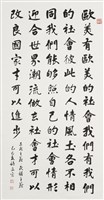 歐美有歐美的社會我們有我們
的社會彼此的人情風土各不相
同我們能夠照自己的社會情形
迎合世界潮流做去社會才可以
改良國家才可以進步